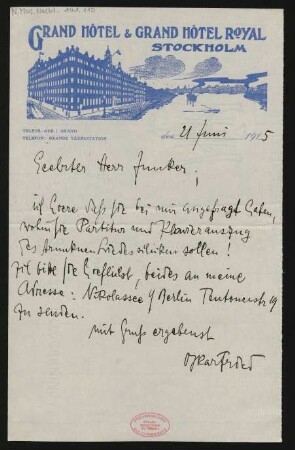 GRAND HÔTEL & GRAND HÔTEL ROYAL
STOCKHOLM
TELEGR.-ADR.: GRAND
TELEFON: GRANDS VÄXELSTATION
den 21 Juni 1915
Geehrter Herr Juncker,
ich hoere daß Sie bei mir angefragt haben,
wohin Sie Partitur und Klavierauszug
des trunknen Liedes schicken sollen!
Ich bitte Sie höflichst, beides an meine
Adresse: Nikolassee b/ Berlin Teutonenstr 19
zu senden.
mit Gruss ergebenst
Oskar Fried